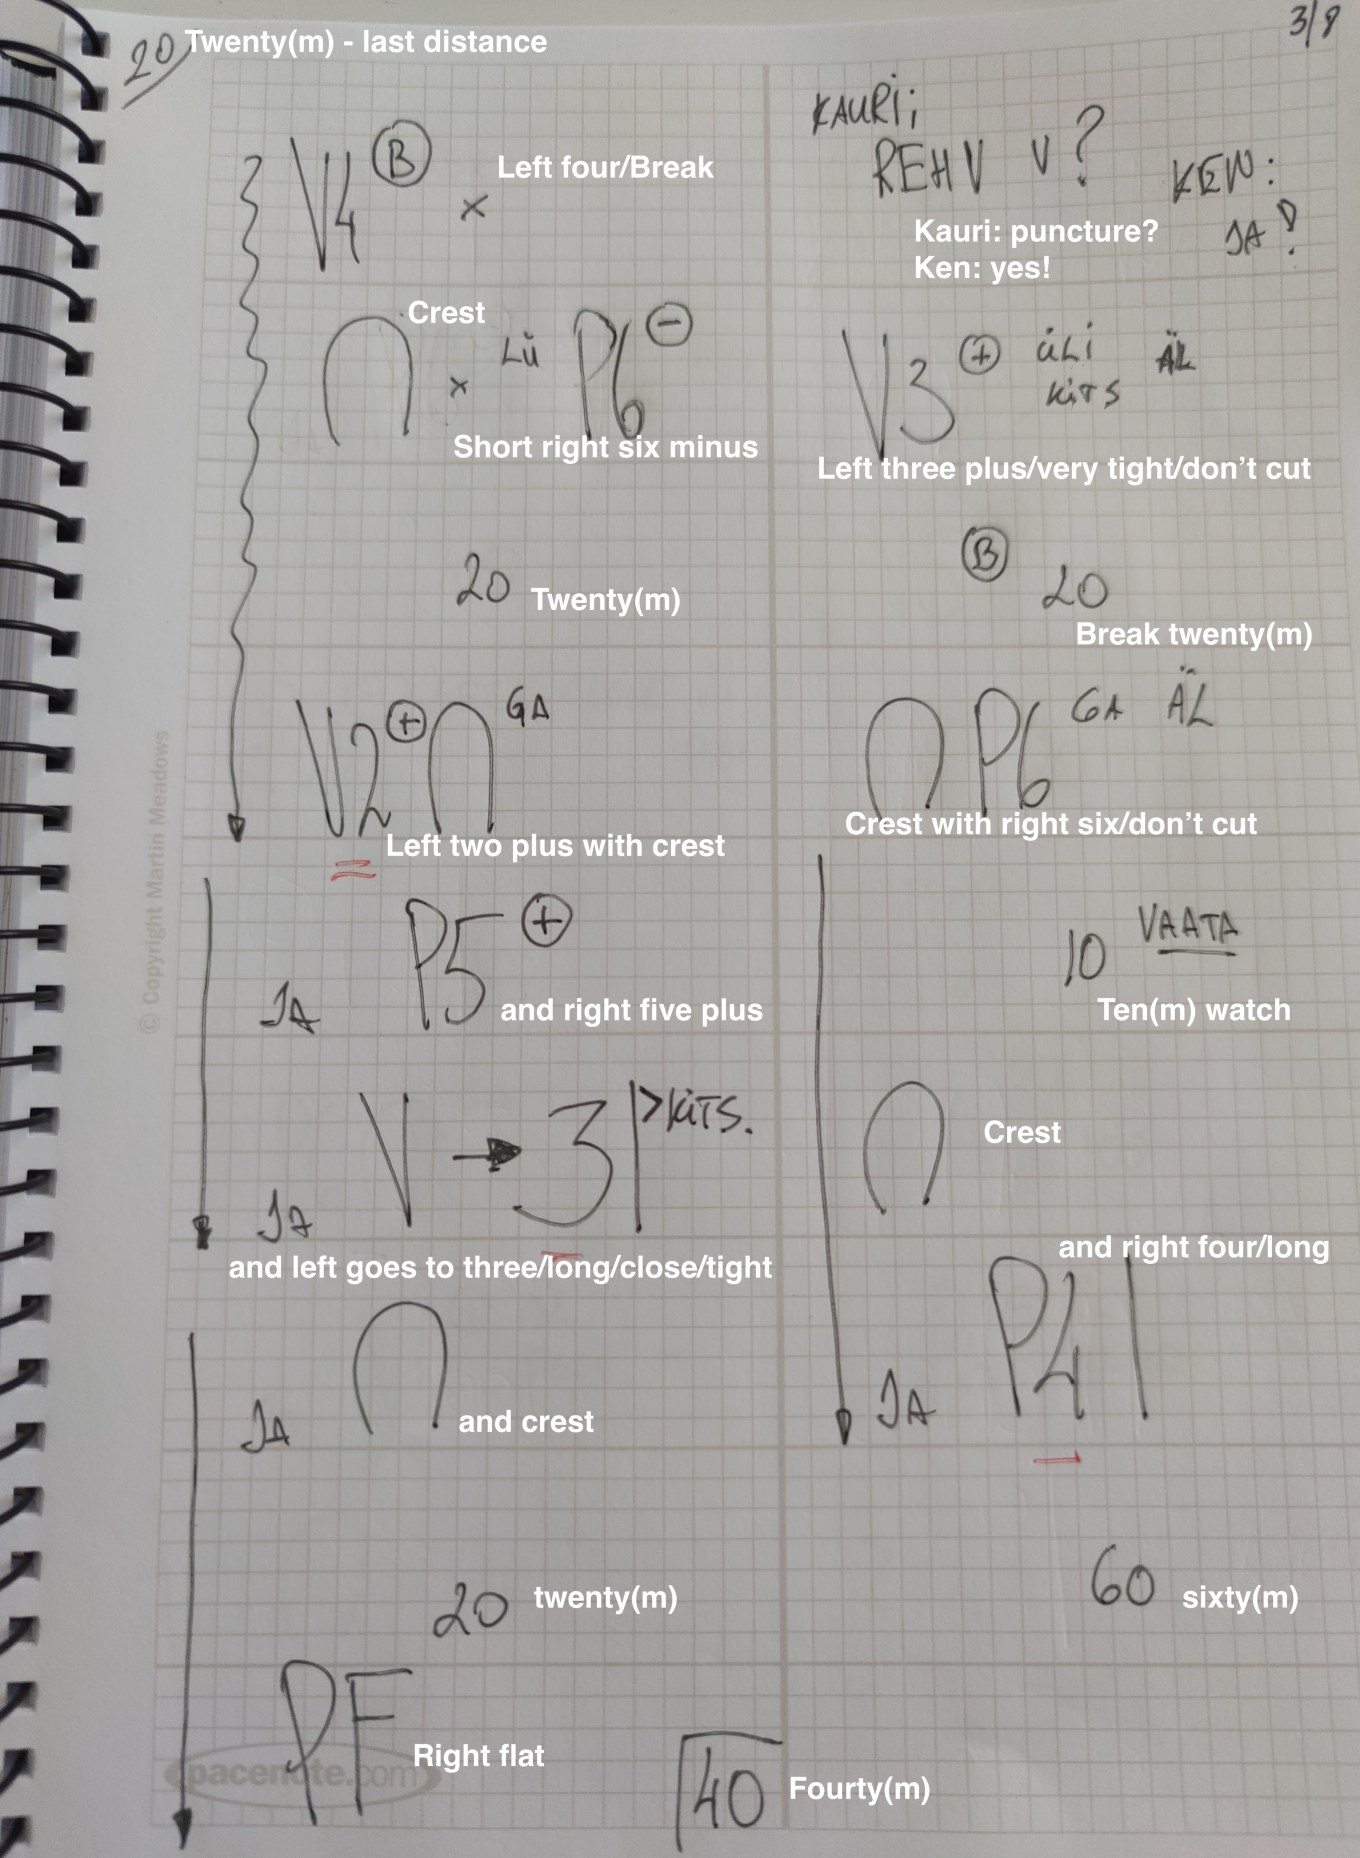 20 Twenty(m) - last distance
3/9
V4 B x
Left four/Break
Crest
∩ x LÜ P6 -
Short right six minus
20 Twenty(m)
V2 + ∩ GA
Left two plus with crest
JA P5 +
and right five plus
JA V → 3 | >KITS.
and left goes to three/long/close/tight
JA ∩
and crest
20 twenty(m)
PF
Right flat
40 Fourty(m)
KAURI:
REHV V?
KEN:
JA!
Kauri: puncture?
Ken: yes!
V3 + ÜLI KITS ÄL
Left three plus/very tight/don't cut
B 20
Break twenty(m)
∩ P6 GA ÄL
Crest with right six/don't cut
10 VAATA
Ten(m) watch
∩ Crest
and right four/long
JA P4 |
60 sixty(m)
© Copyright Martin Meadows
pacenote.com